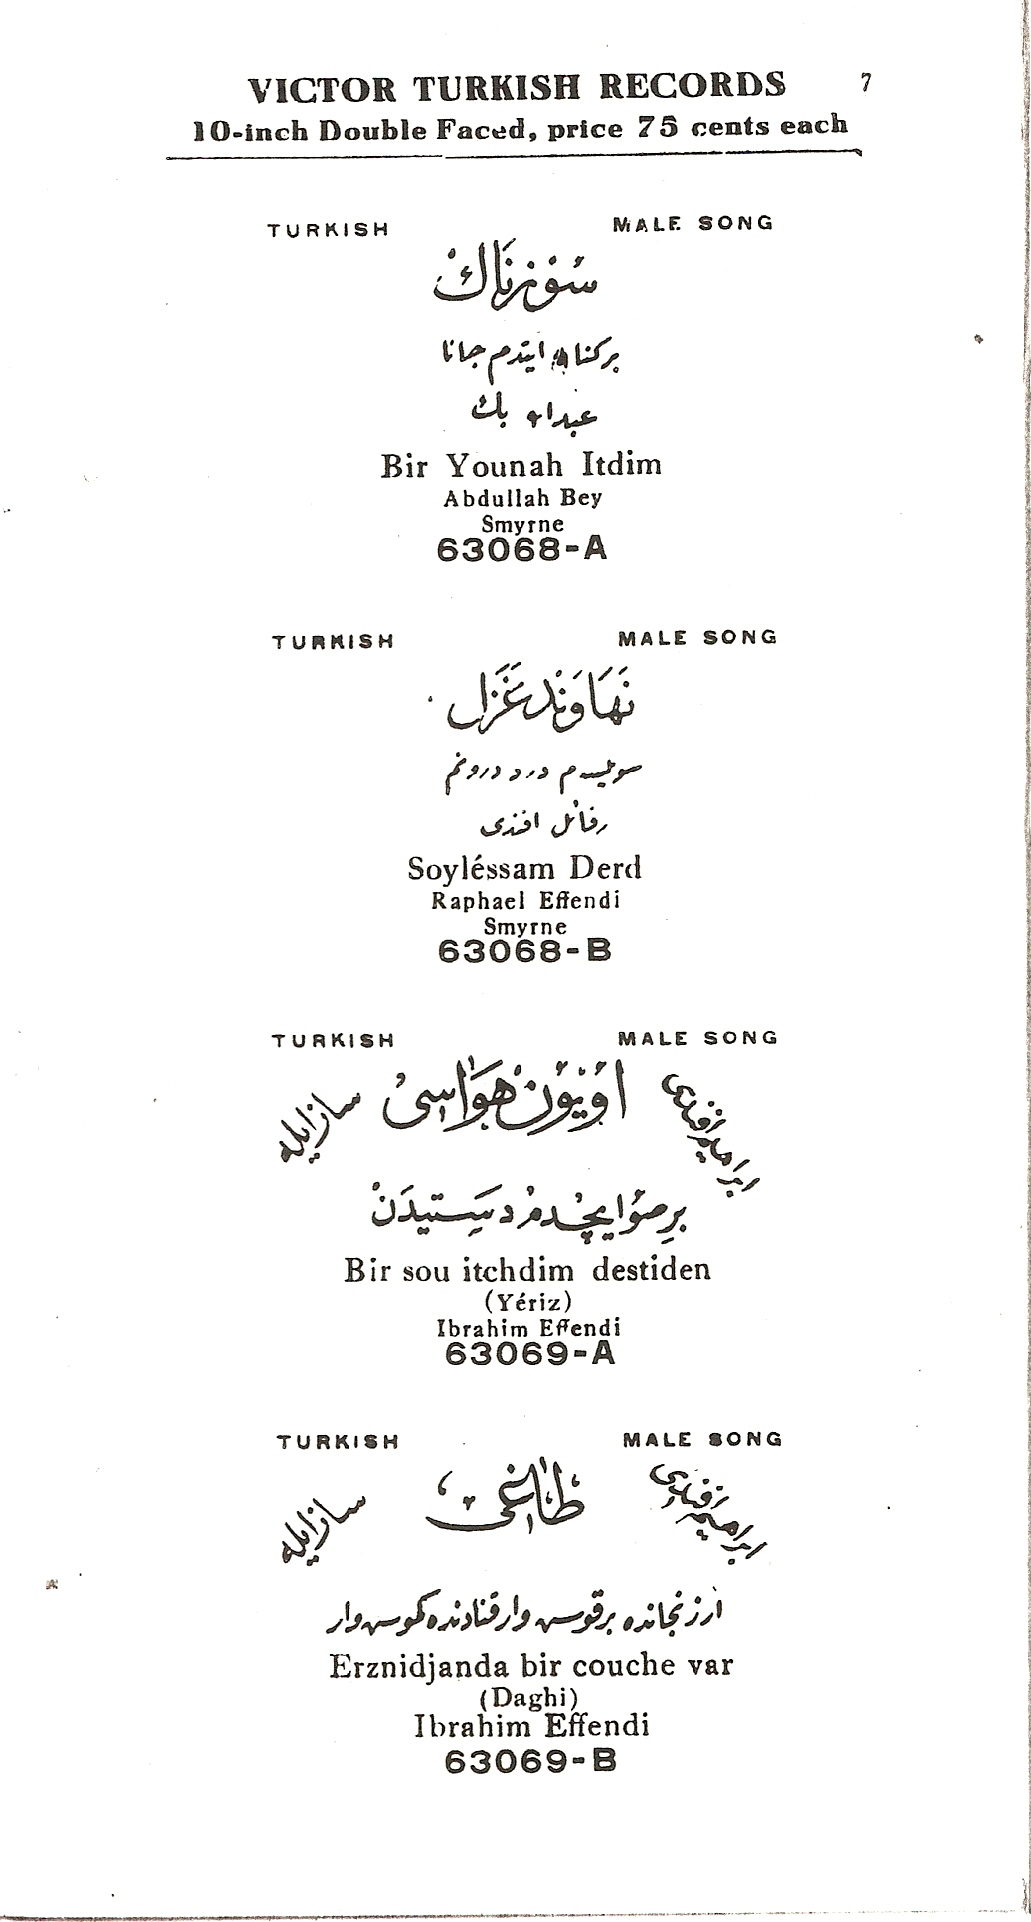 VICTOR TURKISH RECORDS 7
10-inch Double Faced, price 75 cents each
TURKISH MALE SONG
سوزناك
بركناه ايتدم جانا
عبدالله بك
Bir Younah Itdim
Abdullah Bey
Smyrne
63068-A
TURKISH MALE SONG
نَهَاوَند غَزَل
سويليسه م درد درونم
رفائل افندى
Soyléssam Derd
Raphael Effendi
Smyrne
63068-B
TURKISH MALE SONG
ابراهيم افندى اويون هواسى ساز ايله
بر صو ايچدم دستيدن
Bir sou itchdim destiden
(Yériz)
Ibrahim Effendi
63069-A
TURKISH MALE SONG
ابراهيم افندى طاغى ساز ايله
ارزنجانده بر قوس وار قنادنده كموس وار
Erznidjanda bir couche var
(Daghi)
Ibrahim Effendi
63069-B